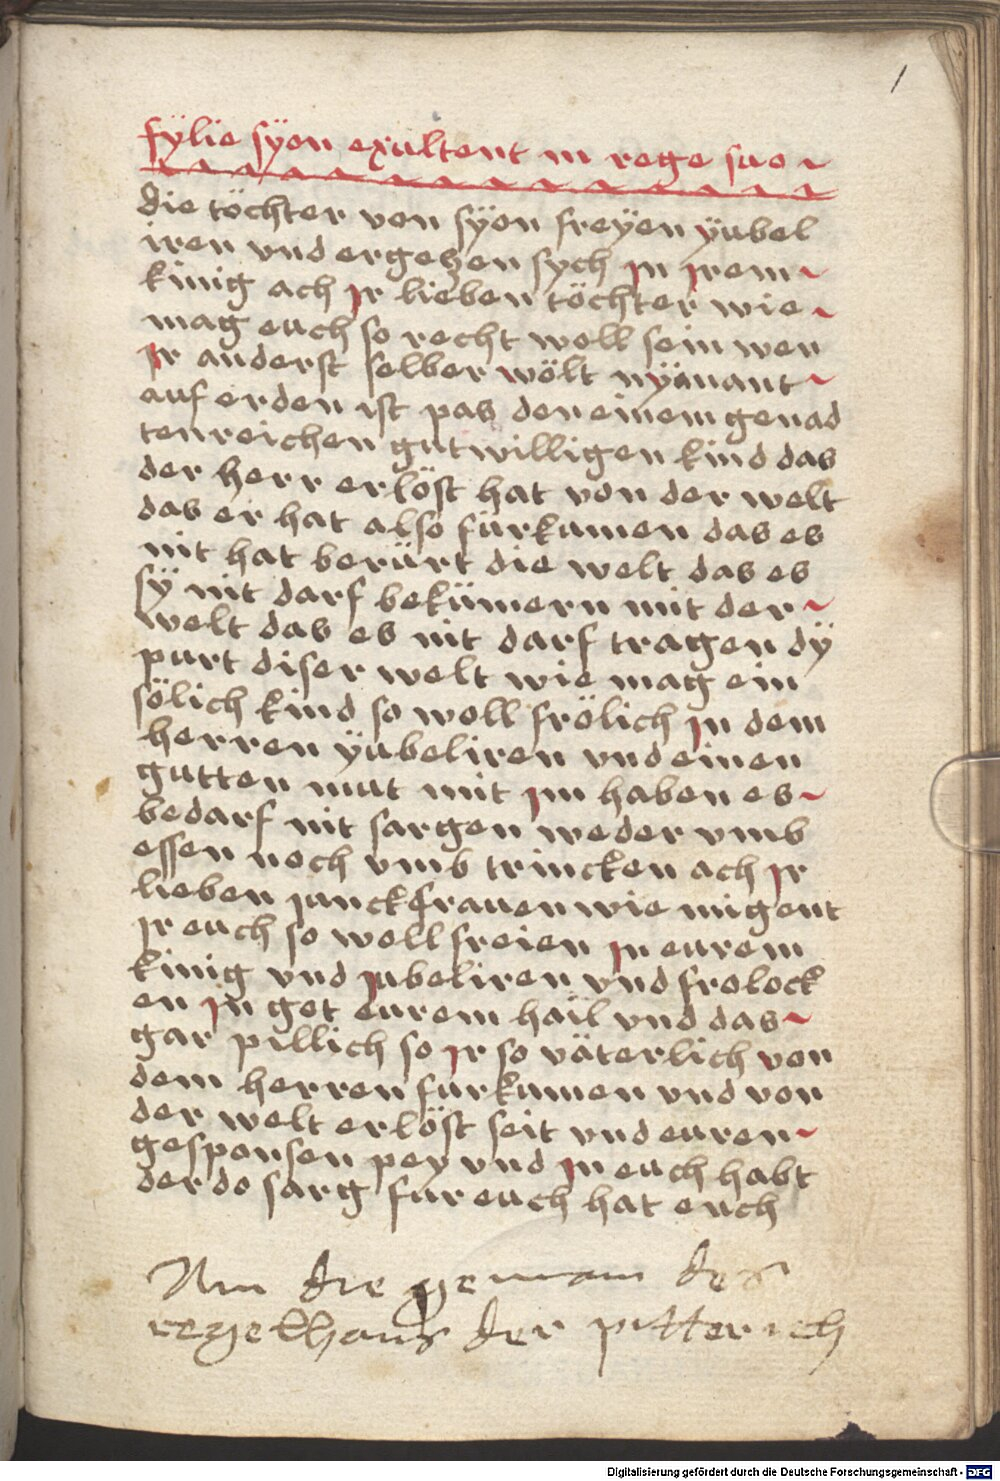 1
fÿlie sÿon exultent in rege suo
die töchter von sÿon freÿen ÿubel
iren vnd ergeczen sych jn jrem
kinig ach jr lieben töchter wie
mag euch so recht woll sein wen
jr anderst selber wölt nÿmant
auf erden ist pas den einem genad
tenreichen gutwilligen kind das
der herr erlöst hat von der welt
das er hat also fürkumen das es
nit hat berürt die welt das es
sÿ nit darf bekümern mit der
welt das es nit darf tragen dÿ
purt diser welt wie mag ein
sölich kind so woll frölich jn dem
herren ÿubeliren vnd einen
gutten mut mit jm haben es
bedarf nit sargen weder vmb
essen noch vmb trincken ach jr
lieben junckfrauen wie mügent
jr euch so woll freien jn eurem
kinig vnd jubeliren vnd frolock
en jn got eurem häil vnd das
gar pillich so jr so väterlich von
dem herren fürkumen vnd von
der welt erlöst seit vnd euren
gesponsen pey vnd jn euch habt
der do sarg für euch hat euch
die gemain des
regelhaus der pitterich
Digitalisierung gefördert durch die Deutsche Forschungsgemeinschaft - DFG